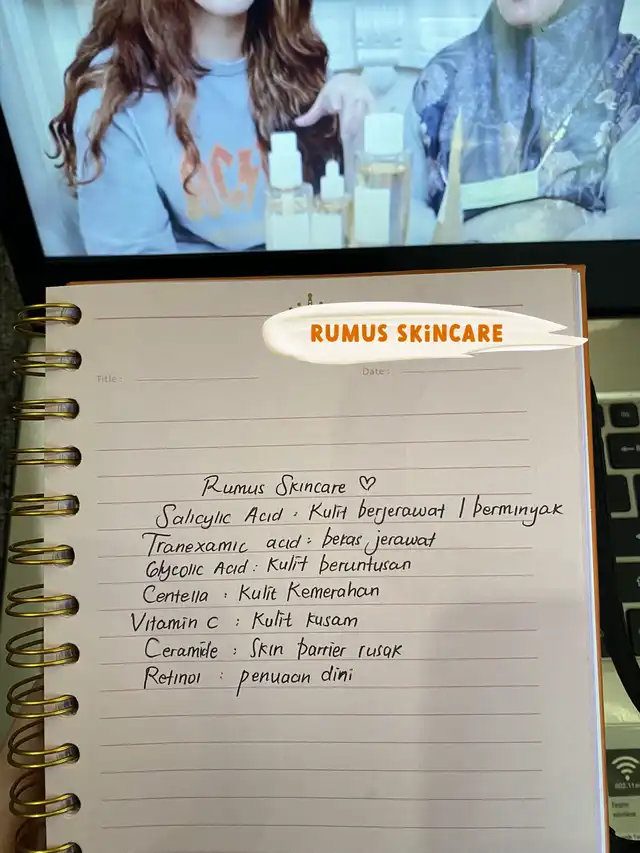 AC/
RUMUS SKiNCARE
Title :
Date :
Rumus Skincare ♡
Salicylic Acid : Kulit berjerawat / berminyak
Tranexamic acid : bekas jerawat
Glycolic Acid : Kulit beruntusan
Centella : Kulit Kemerahan
Vitamin C : Kulit kusam
Ceramide : Skin barrier rusak
Retinol : penuaan dini
802.11